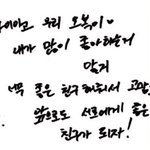 우리 오복이♡
내가 많이 좋아하는거
알지
좋은 친구 해줘서 고맙
앞으로도 서로에게 좋은
친구가 되자!